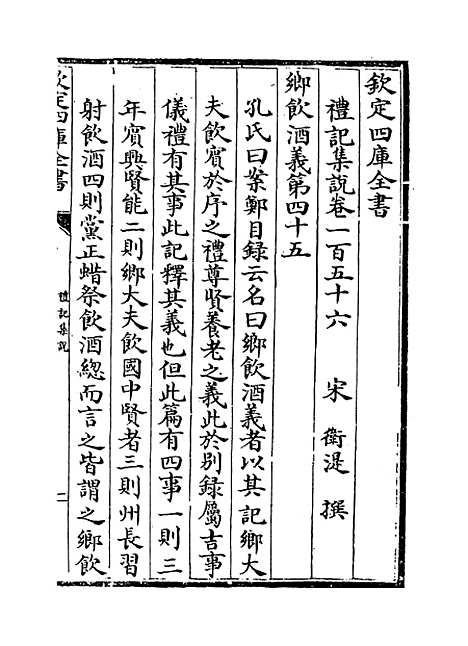 欽定四庫全書
禮記集說卷一百五十六 宋 衛湜 撰
鄉飲酒義第四十五
孔氏曰案鄭目録云名曰鄉飲酒義者以其記鄉大
夫飲賔於序之禮尊賢養老之義此於别録屬吉事
儀禮有其事此記釋其義也但此篇有四事一則三
年賔興賢能二則鄉大夫飲國中賢者三則州長習
射飲酒四則黨正蜡祭飲酒緫而言之皆謂之鄉飲
欽定四庫全書
禮記集說